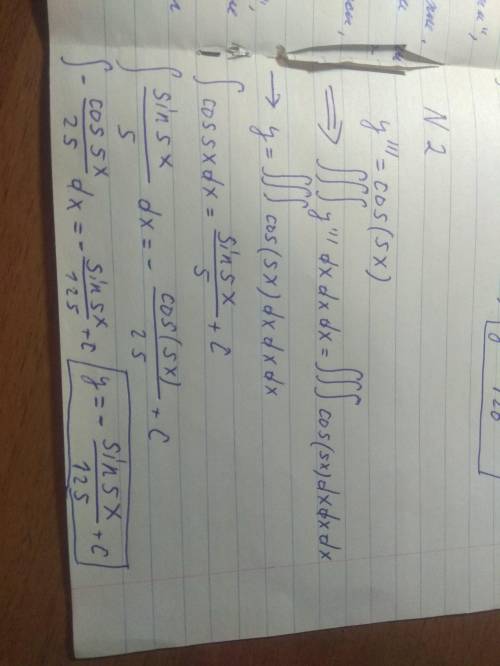 N 2
y''' = cos(5x)
⟹ ∫∫∫ y''' dx dx dx = ∫∫∫ cos(5x) dx dx dx
→ y = ∫∫∫ cos(5x) dx dx dx
∫ cos5x dx = sin5x/5 + C
∫ sin5x/5 dx = - cos(5x)/25 + C
∫ - cos5x/25 dx = - sin5x/125 + C
y = - sin5x/125 + C